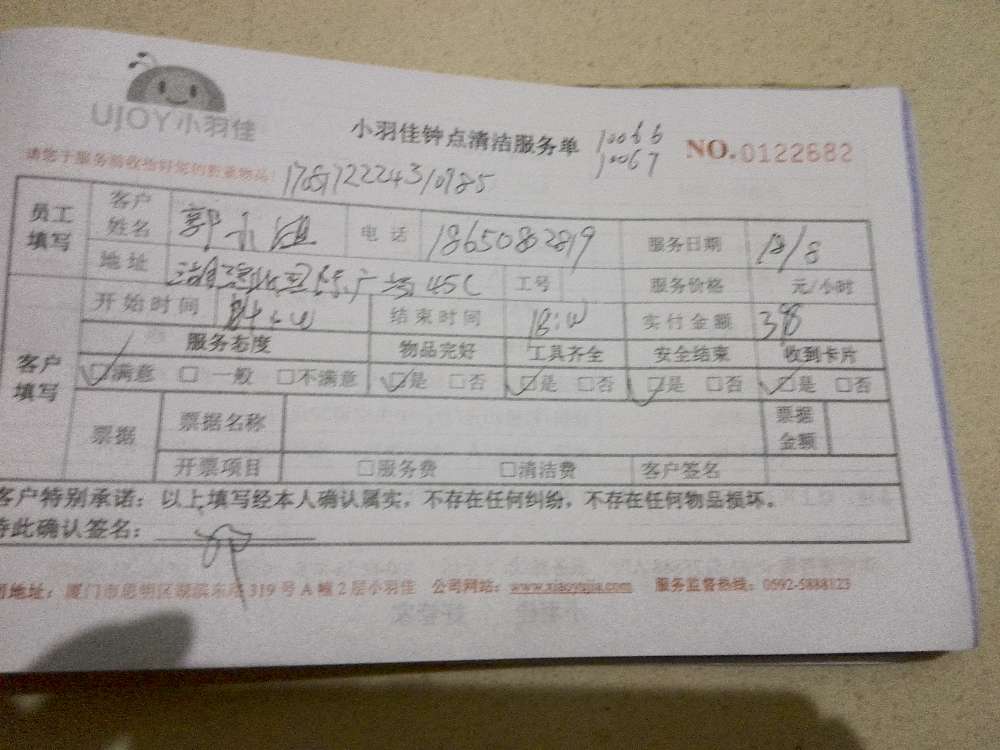 UJOY小羽佳
小羽佳钟点清洁服务单 10066 10067 NO.0122682
请您于服务前收拾好您的贵重物品!
员工填写 客户姓名 郭 电话 18650802819 服务日期 18/8
地址 45C 工号 服务价格 元/小时
开始时间 结束时间 18:00 实付金额 398
客户填写 服务态度 物品完好 工具齐全 安全结束 收到卡片
☑满意 □一般 □不满意 ☑是 □否 ☑是 □否 ☑是 □否 ☑是 □否
票据 票据名称 票据金额
开票项目 □服务费 □清洁费 客户签名
客户特别承诺:以上填写经本人确认属实,不存在任何纠纷,不存在任何物品损坏。
特此确认签名:
司地址:厦门市思明区湖滨东路319号A幢2层小羽佳 公司网站:www.xiaoyujia.com 服务监督热线:0592-5888123